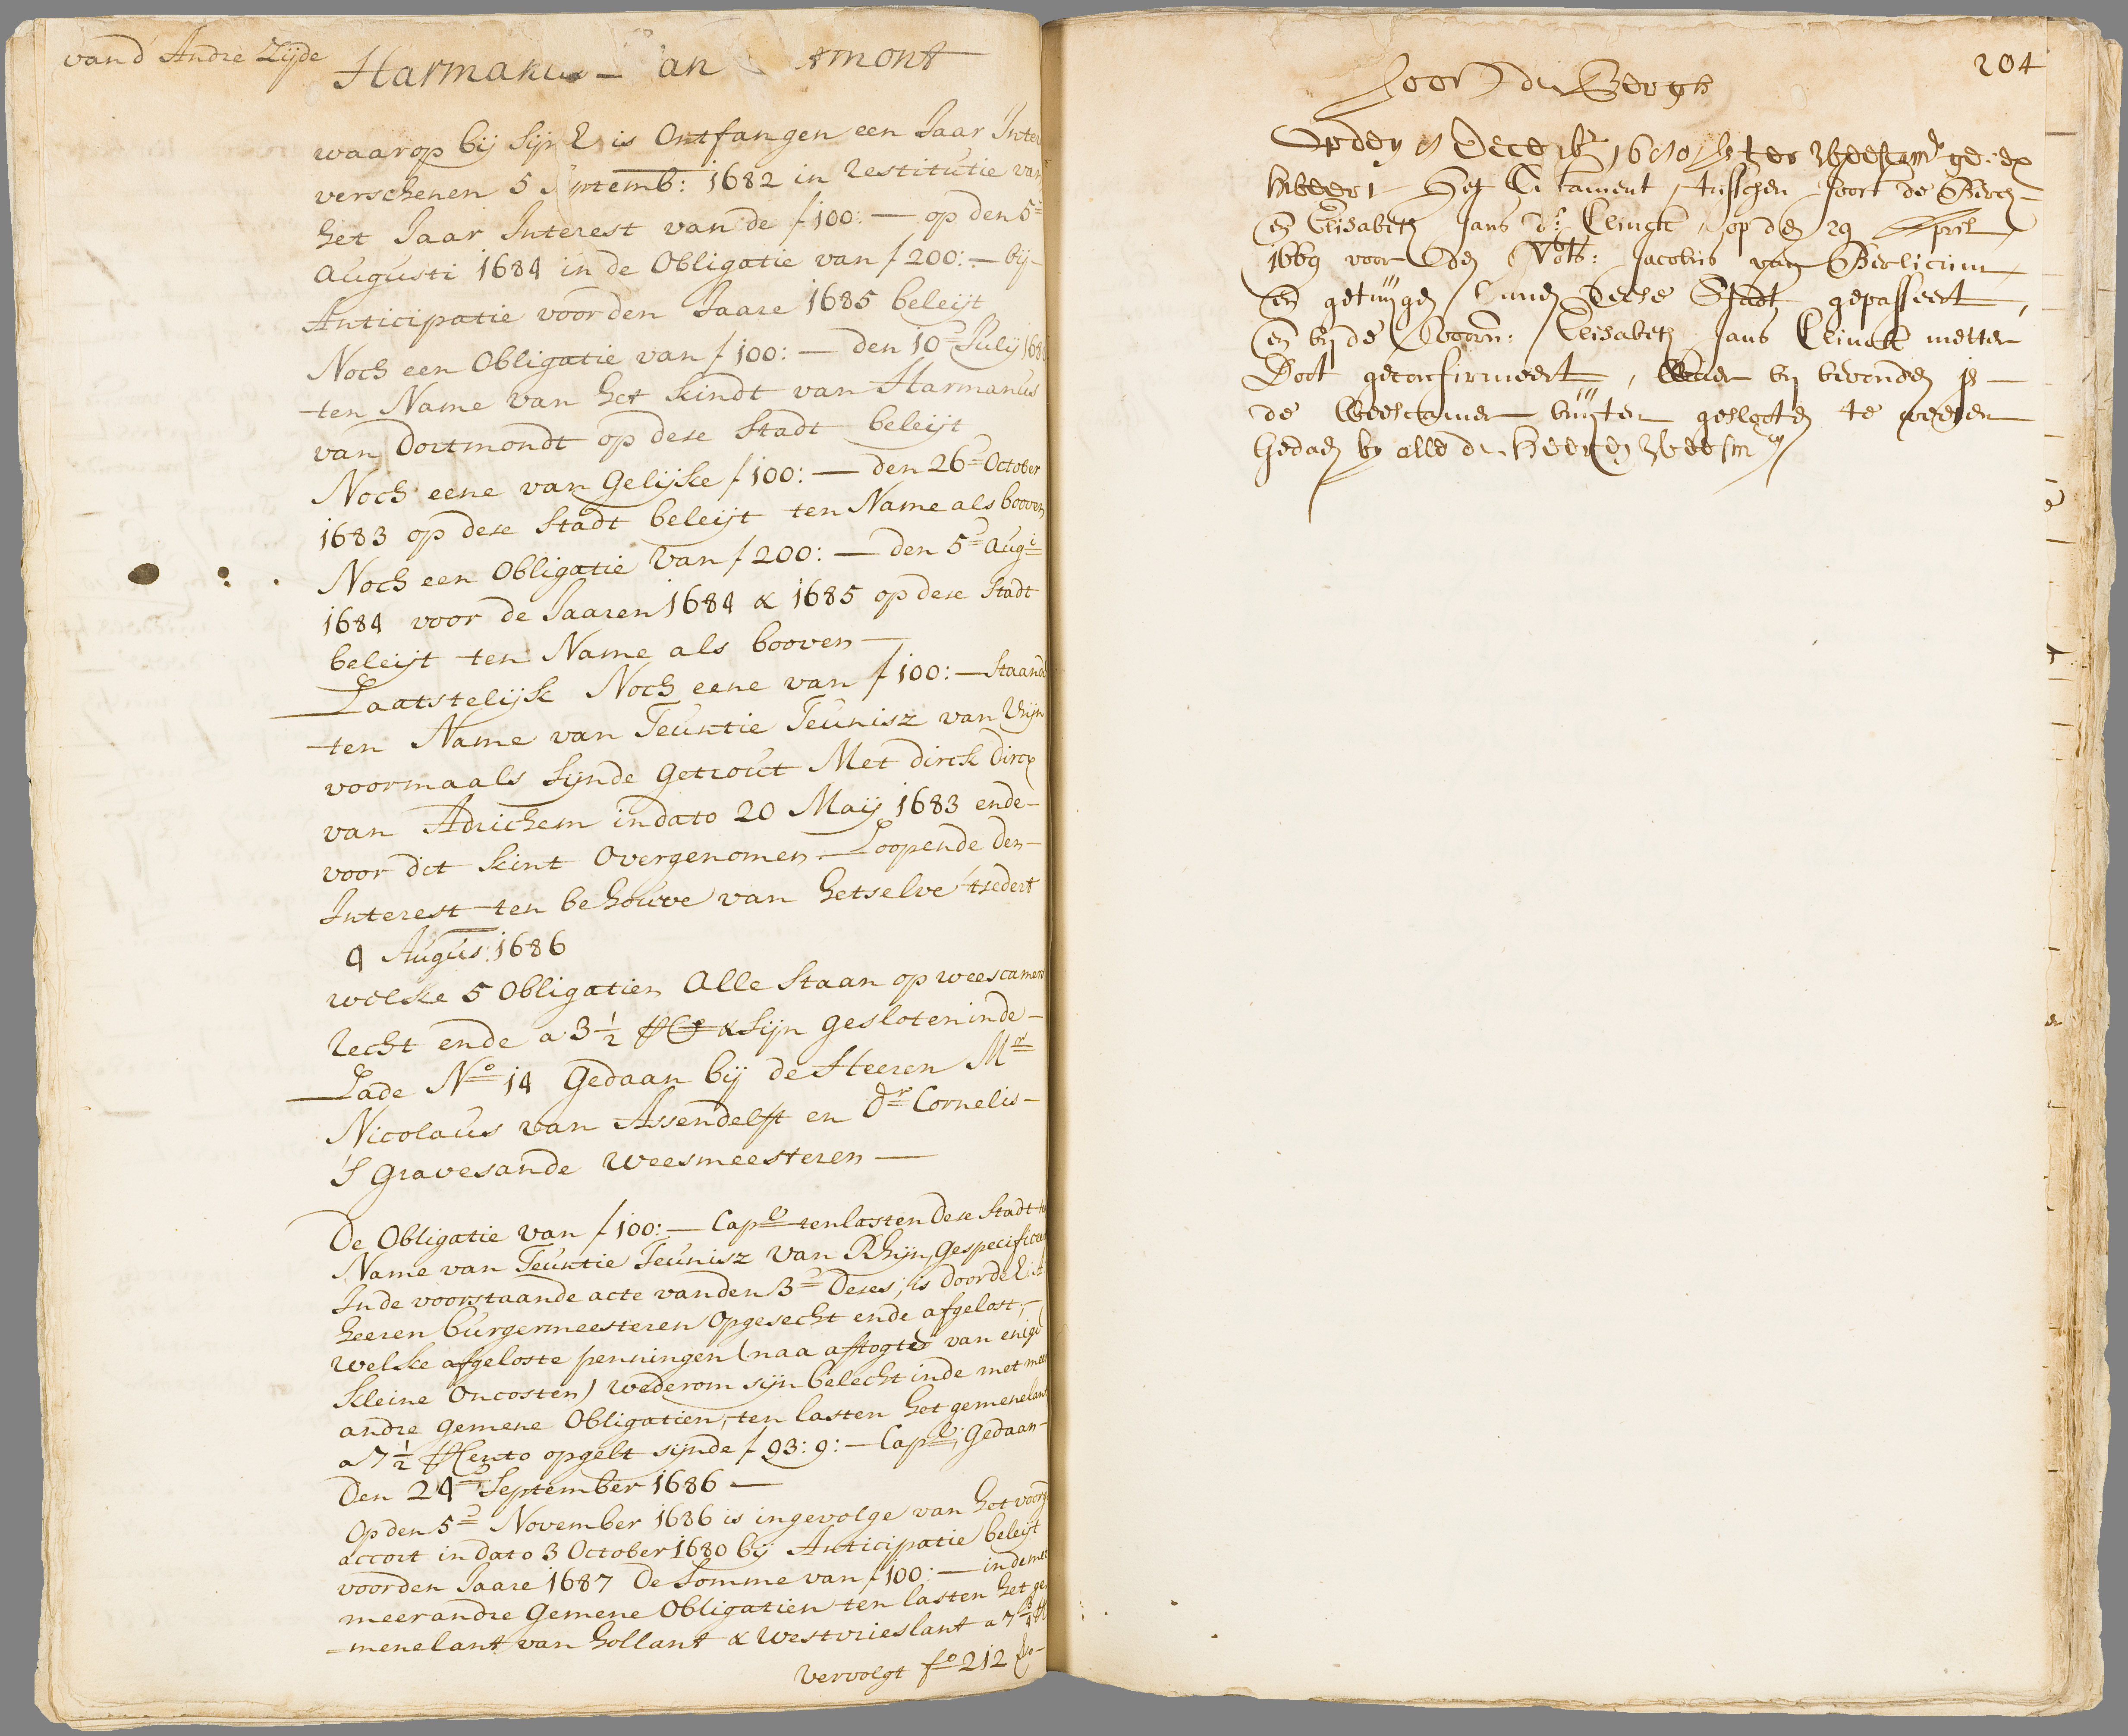 van d' Andre Zijde
Harmanus an tmont
waarop bij Sijn E is Ontfangen een Jaar Inte
verschenen 5 Septemb: 1682 in restitutie van
het Jaar Interest van de ƒ 100:— op den 5e
Augusti 1684 in de Obligatie van ƒ 200:— bij
Anticipatie voor den Jaare 1685 beleijt
Noch een Obligatie van ƒ 100:— den 10e Julij 168
ten Name van het kindt van Harmanus
van Dortmondt op dese Stadt beleijt
Noch eene van Gelijke ƒ 100:— den 26e October
1683 op dese Stadt beleijt ten Name als booven
Noch een Obligatie van ƒ 200:— den 5e Augi
1684 voor de Jaaren 1684 & 1685 op dese Stadt
beleijt ten Name als booven —
Laatstelijk Noch eene van ƒ 100:— Staand
ten Name van Teuntie Teunisz van Rhijn
voormaals sijnde Getrout Met dirck Dircx
van Adrichem in dato 20 Maij 1683 ende
voor dit kint Overgenomen Loopende den
Interest ten behouve van hetselve 'tsedert
4 Augus: 1686
welke 5 Obligatien Alle Staan op weescamer
recht ende a 3½ & sijn gesloten inde
Lade No 14 Gedaan bij de Heeren Mr
Nicolaus van Assendelft en dr Cornelis
'S Gravesande weesmeesteren —
De Obligatie van ƒ 100:— Capl ten lasten dese Stadt
Name van Teuntie Teunisz van Rhijn, Gespecificeer
Inde voorstaande acte vanden 3e deses, is door de E: A
heeren burgermeesteren Opgesecht ende afgelost,
welke afgeloste penningen (naa aftogte van enige
kleine Oncosten) wederom sijn belecht inde met meer
andre gemene Obligatien, ten lasten het gemenelant
a 7½ opgelt sijnde ƒ 93:9:— Capl, Gedaan
Den 24e September 1686 —
Op den 5e November 1686 is ingevolge van het voorg
accort in dato 3 October 1680 bij Anticipatie beleijt
voor den Jaare 1687 De Somme van ƒ 100:— in de me
meer andre Gemene Obligatien ten lasten het ge
=menelant van hollant & westvrieslant a 7
vervolgt fo 212
204
Joort de Bergh
Op den Decembr
Het tusschen Joort de Berch
en Elisabeth Jans dr Clinck, op den 29 April
1669 voor den Nots: Jacobus van Berlicum
en getuijgen binnen deese Stadt gepasseert,
en bij de voorn: Elisabeth Jans Clinck metter
Doot geconfirmeert, bij bevonden is
de Weescamer buijten geslooten te weesen
Gedaen by alle de Heeren Weesmrs